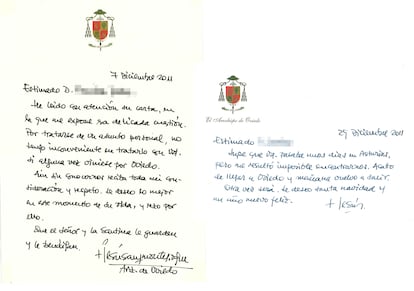 7 Diciembre 2011
Estimado D.
He leído con atención su carta, en
la que me expone su delicada cuestión.
Por tratarse de un asunto personal, no
tengo inconveniente en tratarlo con Vd.
si alguna vez viniese por Oviedo.
Aún sin conocernos reciba toda mi con-
sideración y respeto. Le deseo lo mejor
en este momento de su vida, y rezo por
ello.
Que el Señor y la Santina le guarden
y le bendigan.
Arz. de Oviedo
El Arzobispo de Oviedo
29 Diciembre 2011
Estimado
Supe que Vd. pasaba unos días en Asturias,
pero me resultó imposible encontrarnos. Acabo
de llegar a Oviedo y mañana vuelvo a salir.
Otra vez será. Le deseo santa navidad y
un año nuevo feliz.
+ Jesús